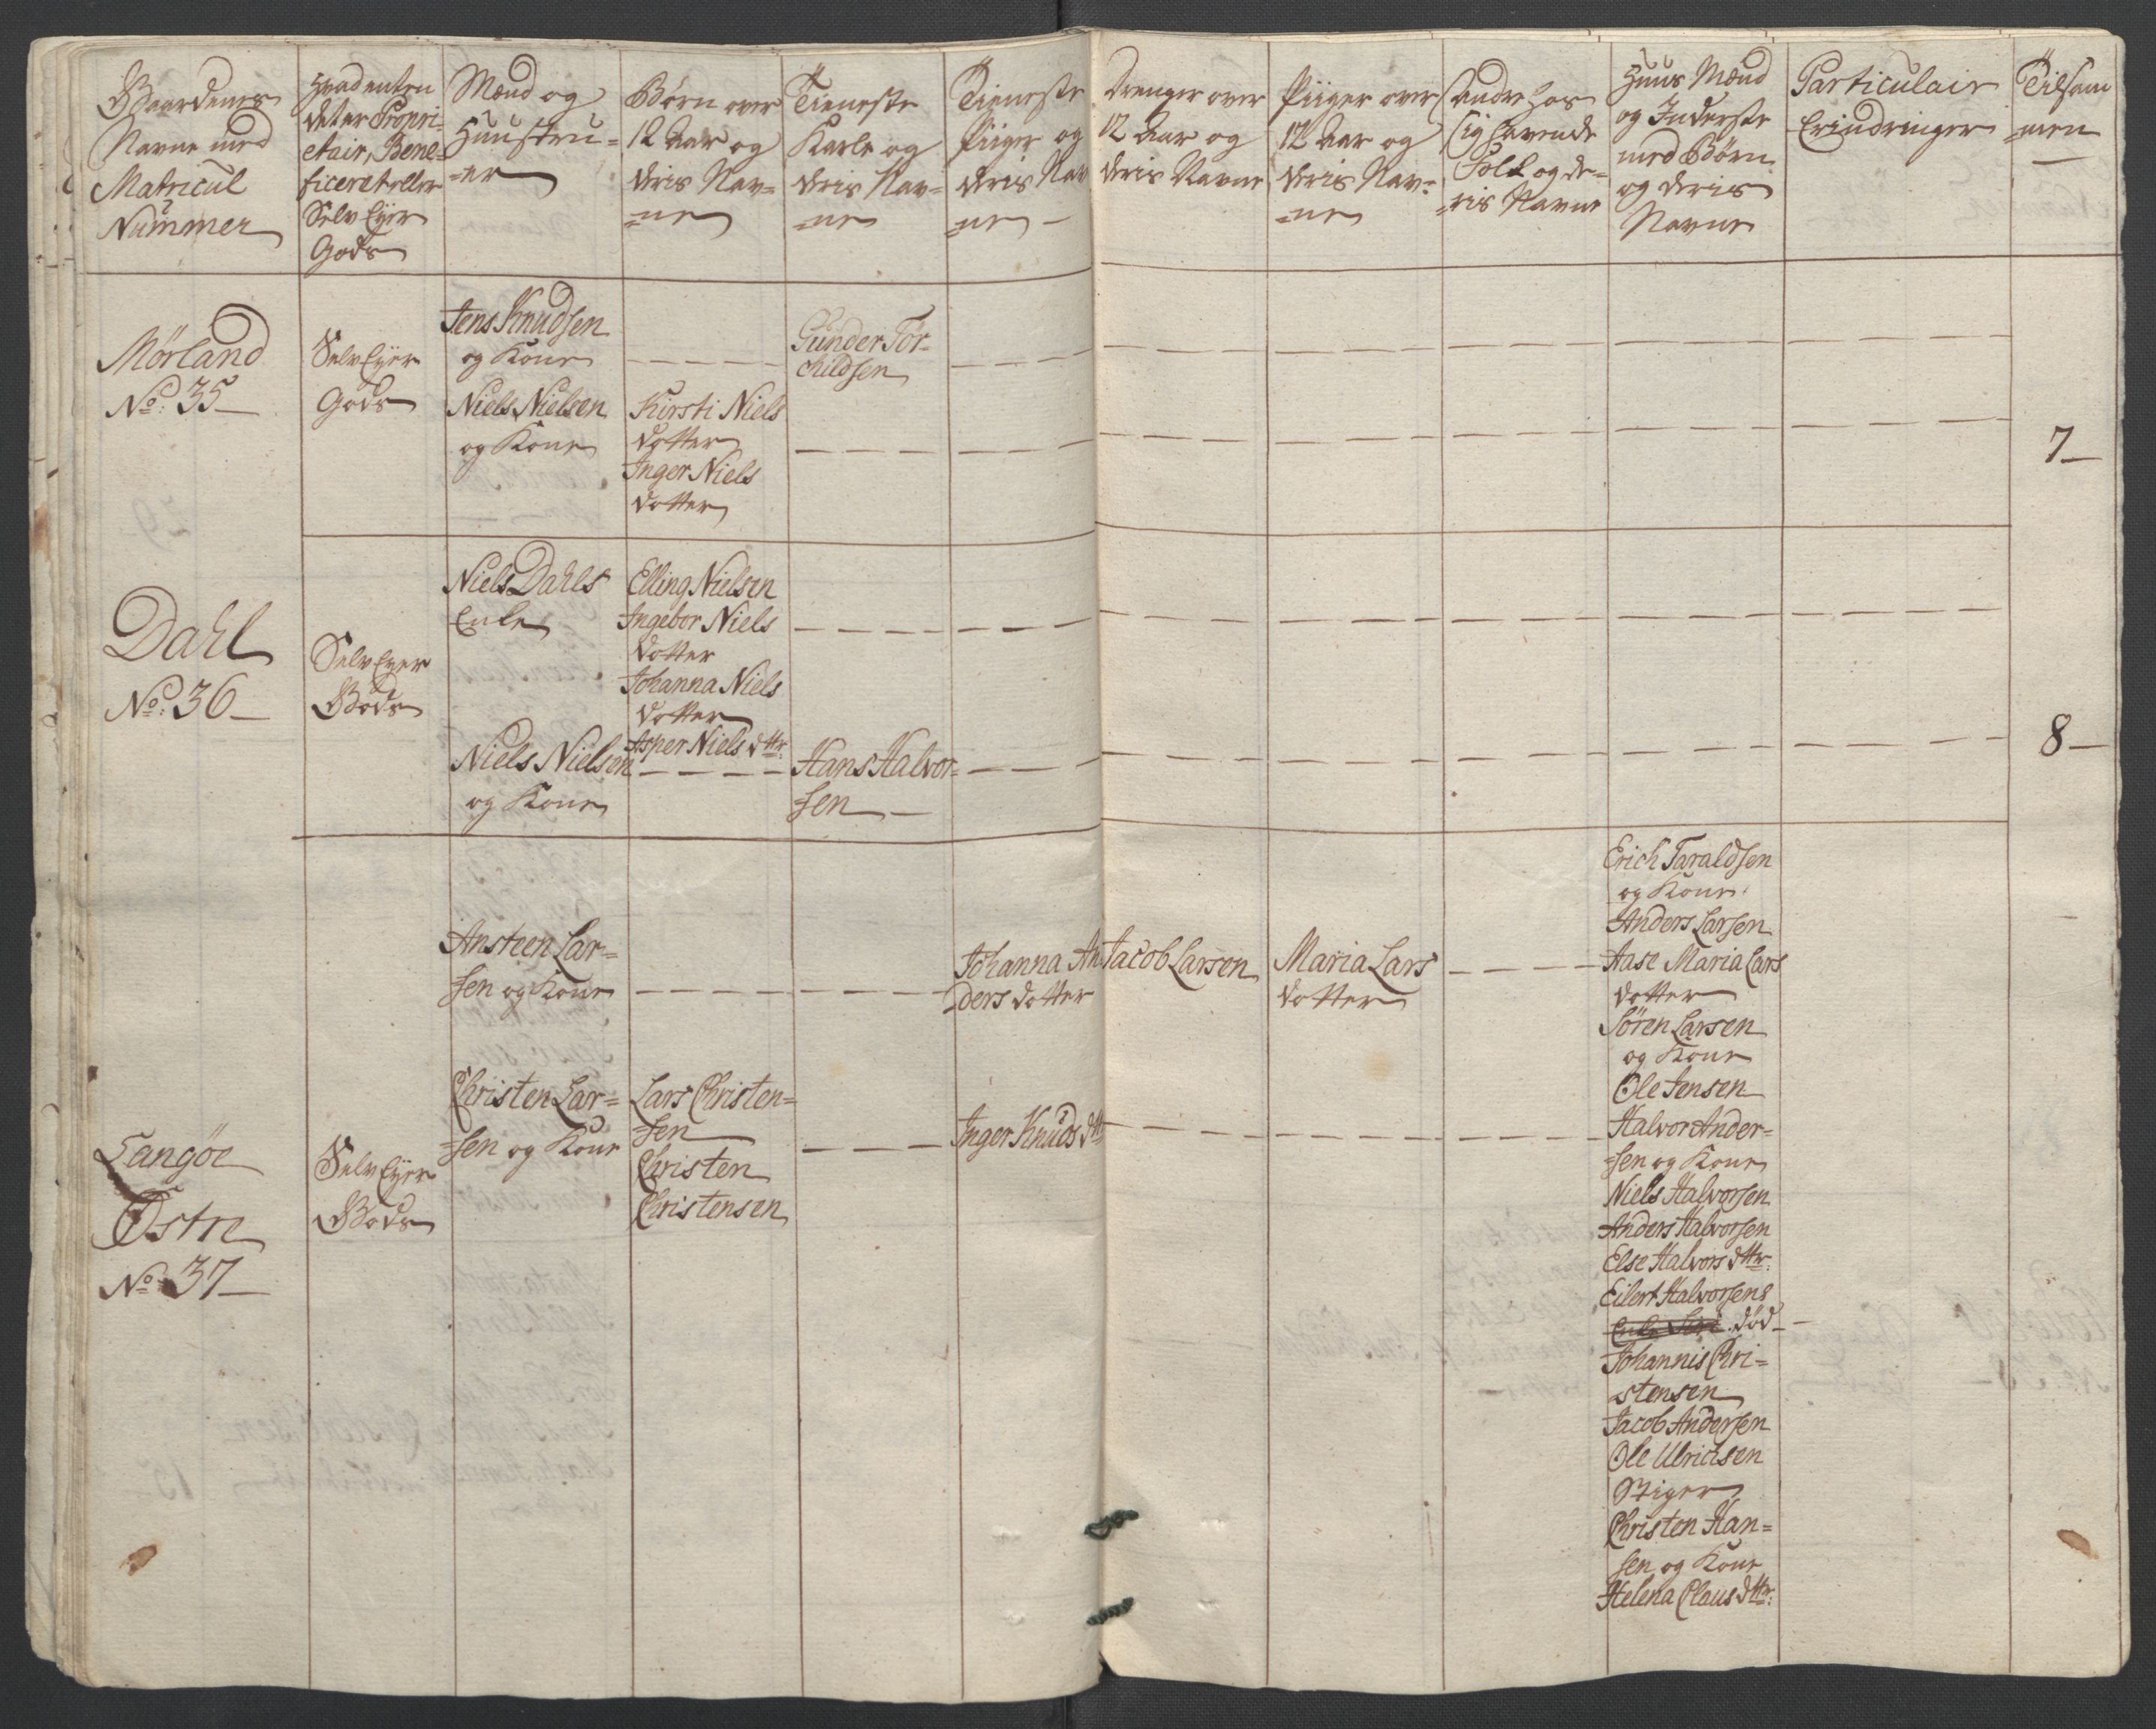 Gaardenes
Navne med
Matricul
Nummer
Hvad enten
det er Propri-
etair, Bene-
ficeret eller
Selv Eyer
Gods
Mænd og
Huustru-
-er
Børn over
12 Aar og
deris Nav=
=ne
Tieneste
Karle og
deris Nav=
=ne
Tieneste
Piiger og
deris Nav
=ne
Drenger over
12 Aar og
deris Navne
Piiger over
12 Aar og
deris Nav=
=ne
Andre hos
sig havende
Folk og de=
=ris Navne
Huus Mænd
og Inderste
med Børn
og deris
Navne
Particulair
Erindringer
Tilsam
=men
Mørland
No: 35
Selv Eyer
Gods
Jens Knudsen
og Kone
Gunder Tor-
childsen
Niels Nielsen
og Kone
Kirsti Niels
dotter
Inger Niels
dotter
7
Dahl
No: 36
Selv Eyer
Gods
Niels Dahls
Enke
Elling Nielsen
Ingebor Niels
dotter
Johanna Niels
dotter
Asper Niels dttr:
Niels Nielsen
og Kone
Hans Halvor=
sen
8
Langöe
Østre
No 37
Selv Eyer
Gods
Ansteen Lar=
sen og Kone
Johanna An
ders dotter
Jacob Larsen
Maria Lars
dotter
Christen Lar=
sen og Kone
Lars Christen=
sen
Christen
Christensen
Inger Knuds dtt
Erich Taraldsen
og Kone
Anders Larsen
Aase Maria Lars
dotter
Sören Larsen
og Kone
Ole Jensen
Halvor Ander=
sen og Kone
Niels Halvorsen
Anders Halvorsen
Else Halvors dttr:
Eilert Halvorsens
Enke død
Johannis Chri=
stensen
Jacob Andersen
Ole Ulrichsen
Stiger
Christen Han=
sen og Kone
Helena Claus dttr: